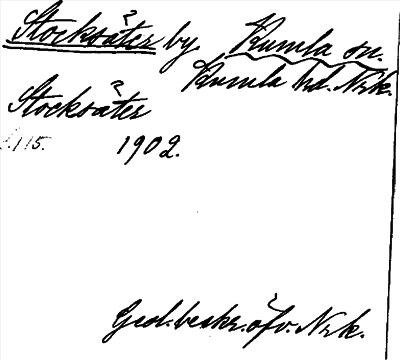 Stocksäter by Kumla sn.
Kumla hd. Nrk.
Stocksäter
s.115. 1902.
Geol. beskr. öfv. Nrk.